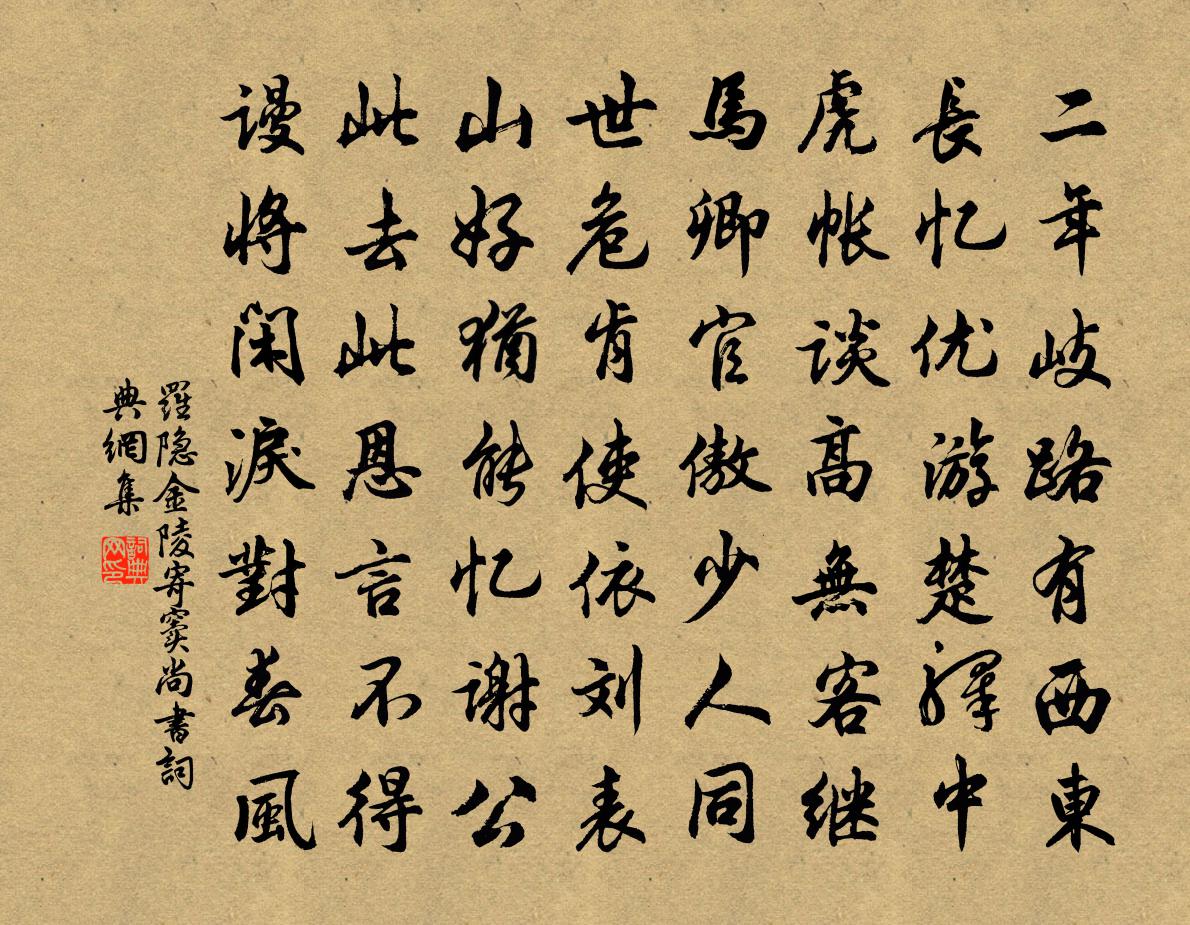 二年歧路有西東
長忆优游楚驿中
虎帐谈高無客继
馬卿官傲少人同
世危肯使依刘表
山好猶能忆谢公
此去此恩言不得
谩将闲淚對春風
羅隐金陵寄窦尚書詞
典網集
詞典
网印